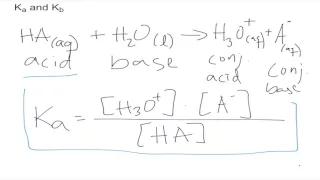 Kₐ and K_b
HA(aq) + H₂O(l) → H₃O⁺(aq) + A⁻(aq)
acid base conj. acid conj. base
Kₐ = [H₃O⁺] · [A⁻] / [HA]